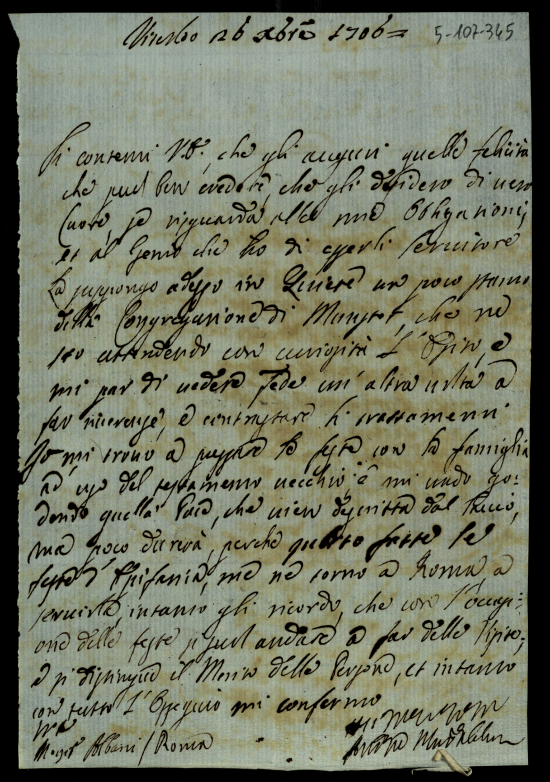 Viterbo 26 Xbre 1706= 5-107-345
Si contenti V.S., che gli auguri quelle felicità
che può ben credere, che gli desidero di vero
Cuore, se risguarda alle mie Obligationi,
et al Genio che ho di esserli Servitore
La suppongo adesso in Quiete un poco
della Congregatione di Monsr, che ne
sto attendendo con curiosità l'Esito, e
mi par di vedere Fede un'altra volta a
far riverenze, e contrastare li trattamenti
Io mi trovo a passare le feste con la famiglia
ad uso del testamento vecchio e mi vado go-
dendo quella Pace, che vien descritta dal
ma poco durerà, perche fatte le
feste d'Epifania, me ne torno a Roma, a
servirla, intanto gli ricordo, che con l'occasi-
one delle feste si puol andare a far delle Visite,
e si distingue il Merito delle Persone, et intanto
con tutto l'Ossequio mi confermo
Monsr Albani / Roma